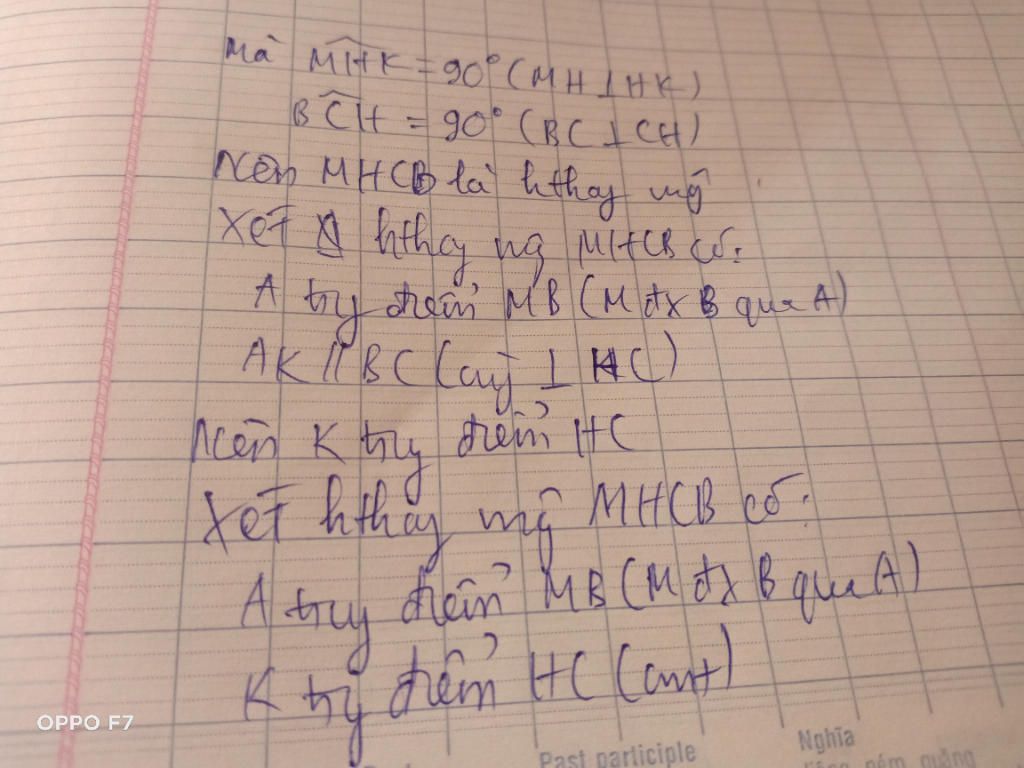 Mà MHK = 90° (MH ⊥ HK)
BCH = 90° (BC ⊥ CH)
Nên MHCB là hthag
Xét hthag MHCB có:
A trg điểm MB (M đx B qua A)
AK // BC (cùg ⊥ HC)
Nên K trg điểm HC
Xét hthag MHCB có:
A trg điểm MB (M đx B qua A)
K trg điểm HC (cmt)
OPPO F7
Past participle
Nghĩa
ném quăng